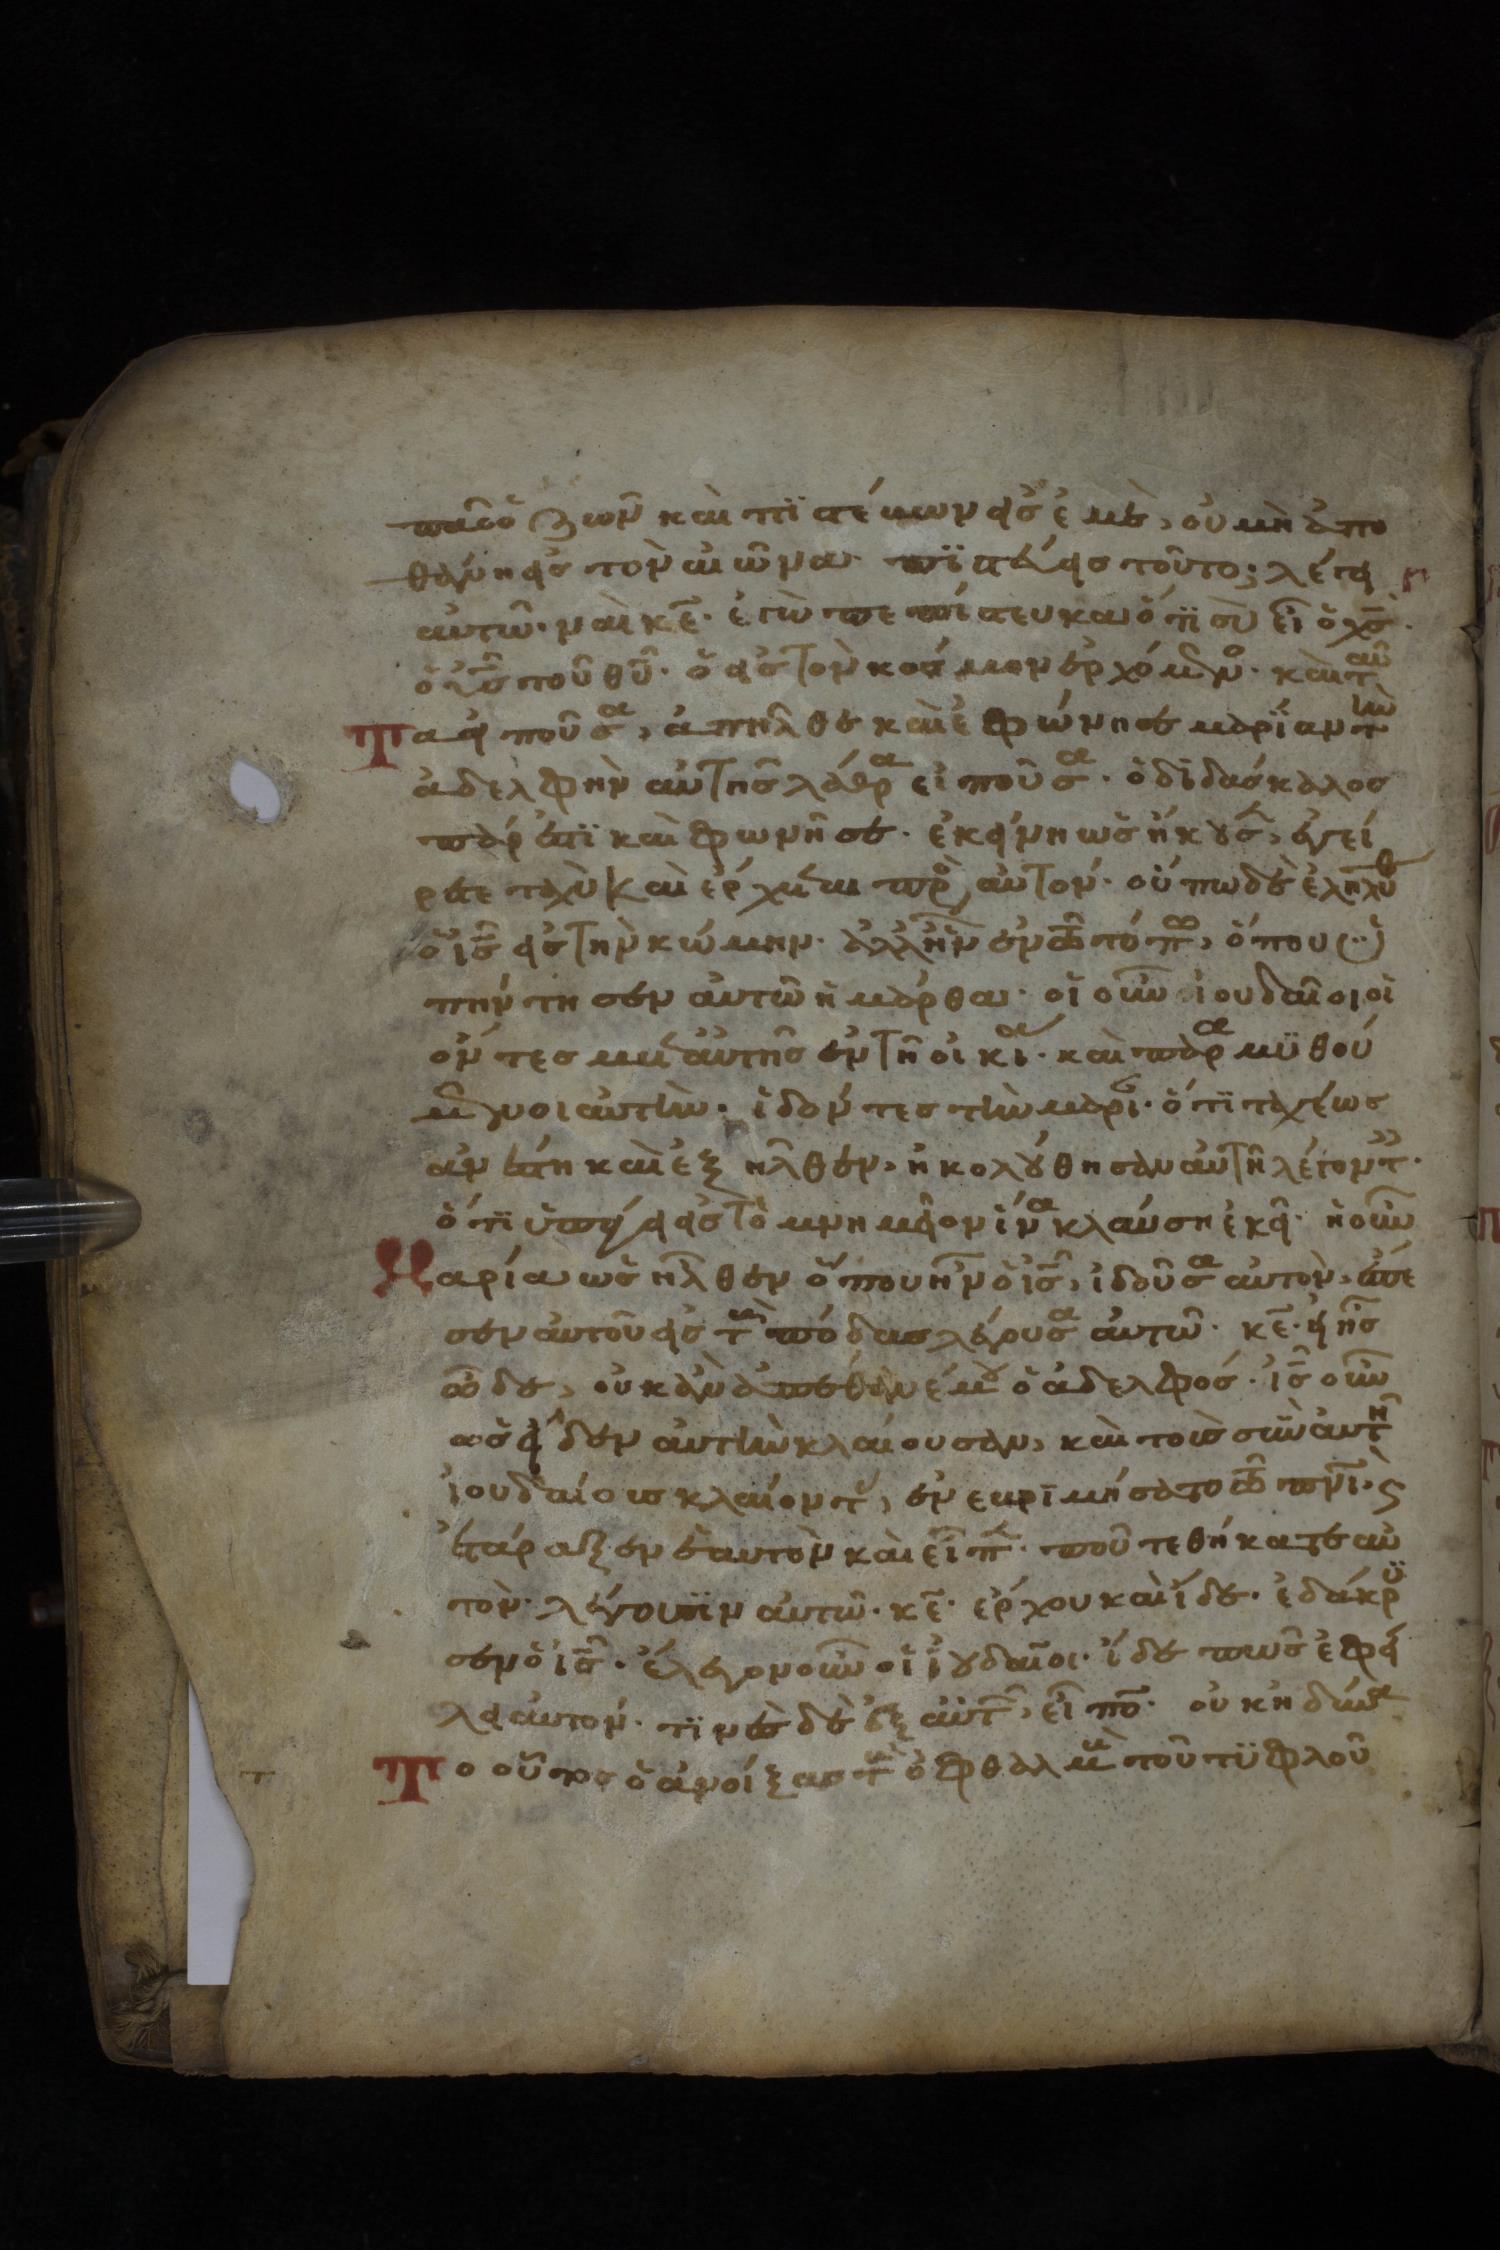 πᾶς ὁ ζῶν καὶ πϊστεύων εἰς ἐμὲ, οὐ μὴ ἀπο
θάνη εἰς τὸν αἰῶνα· πϊστεύεις τοῦτο; λέγει
αὐτῶ· ναὶ κε̅· ἐγὼ πεπίστευκα ὅτϊ σὺ εἶ ὁ χς̅·
ὁ υἱς̅ τοῦ θυ̅· ὁ εἰς τὸν κόσμον ἐρχόμενο· καὶ ταῦ
τα εἰποῦσα, ἀπῆλθε καὶ ἐφώνησε μαρϊαμ τὴν
ἀδελφὴν αὐτῆς λάθρα εἰποῦσα· ὁ διδάσκαλος
πάρεστϊ καὶ φωνῆ σε· ἐκείνη ὡς ἤκουσεν, ἐγεί
ρεται ταχὺ καὶ ἔρχεται πρὸς αὐτόν· οὔπω δὲ ἐληλύθ
ὁ ις̅ εἰς τὴν κώμην· ἀλλ' ἦν ἐν τῶ τόπω, ὅπου ὑ
πήντησεν αὐτῶ ἡ μάρθα· οἱ οὖν ἰουδαῖοι οἱ
ὄντες μετ' αὐτῆς ἐν τῆ οἰκία· καὶ παραμϋθού
μενοι αὐτὴν· ἰδόντες τὴν μαρί· ὅτϊ ταχέως
ἀνέστη καὶ ἐξῆλθεν, ἠκολούθησαν αὐτῆ λέγοντες·
ὅτϊ ὑπάγει εἰς τὸ μνημεῖον ἵνα κλαύση ἐκεῖ· ἡ οὖν
Μαρία ὡς ἦλθεν ὅπου ἦν ὁ ις̅, ἰδοῦσα αὐτὸν, ἔπε
σεν αὐτοῦ εἰς τοὺς πόδας λέγουσα αὐτῶ· κε̅· εἰ ἦς
ὧδε, οὐκ ἂν ἀπέθανέ μου ὁ ἀδελφός· ις̅ οὖν
ὡς εἶδεν αὐτὴν κλαίουσαν, καὶ τοὺς σὺν αὐτῆ
ἰουδαίοις κλαίοντ, ἐνεβριμήσατο τῶ πνι̅· καὶ
ἐτάραξεν ἑαυτὸν καὶ εἶπεν· ποῦ τεθήκατε αὐ
τὸν· λέγουσϊν αὐτῶ· κε̅· ἔρχου καὶ ἴδε· ἐδάκρυ
σεν ὁ ις̅· ἔλεγον οὖν οἱ ἰουδαῖοι· ἴδε πῶς ἐφί
λει αὐτόν· τϊνὲς δὲ ἐξ αὐτῶν εἶπον· οὐκ ἠδύνα
Το οὗτος ὁ ἀνοίξας τοὺς ὀφθαλμοὺς τοῦ τϋφλοῦ